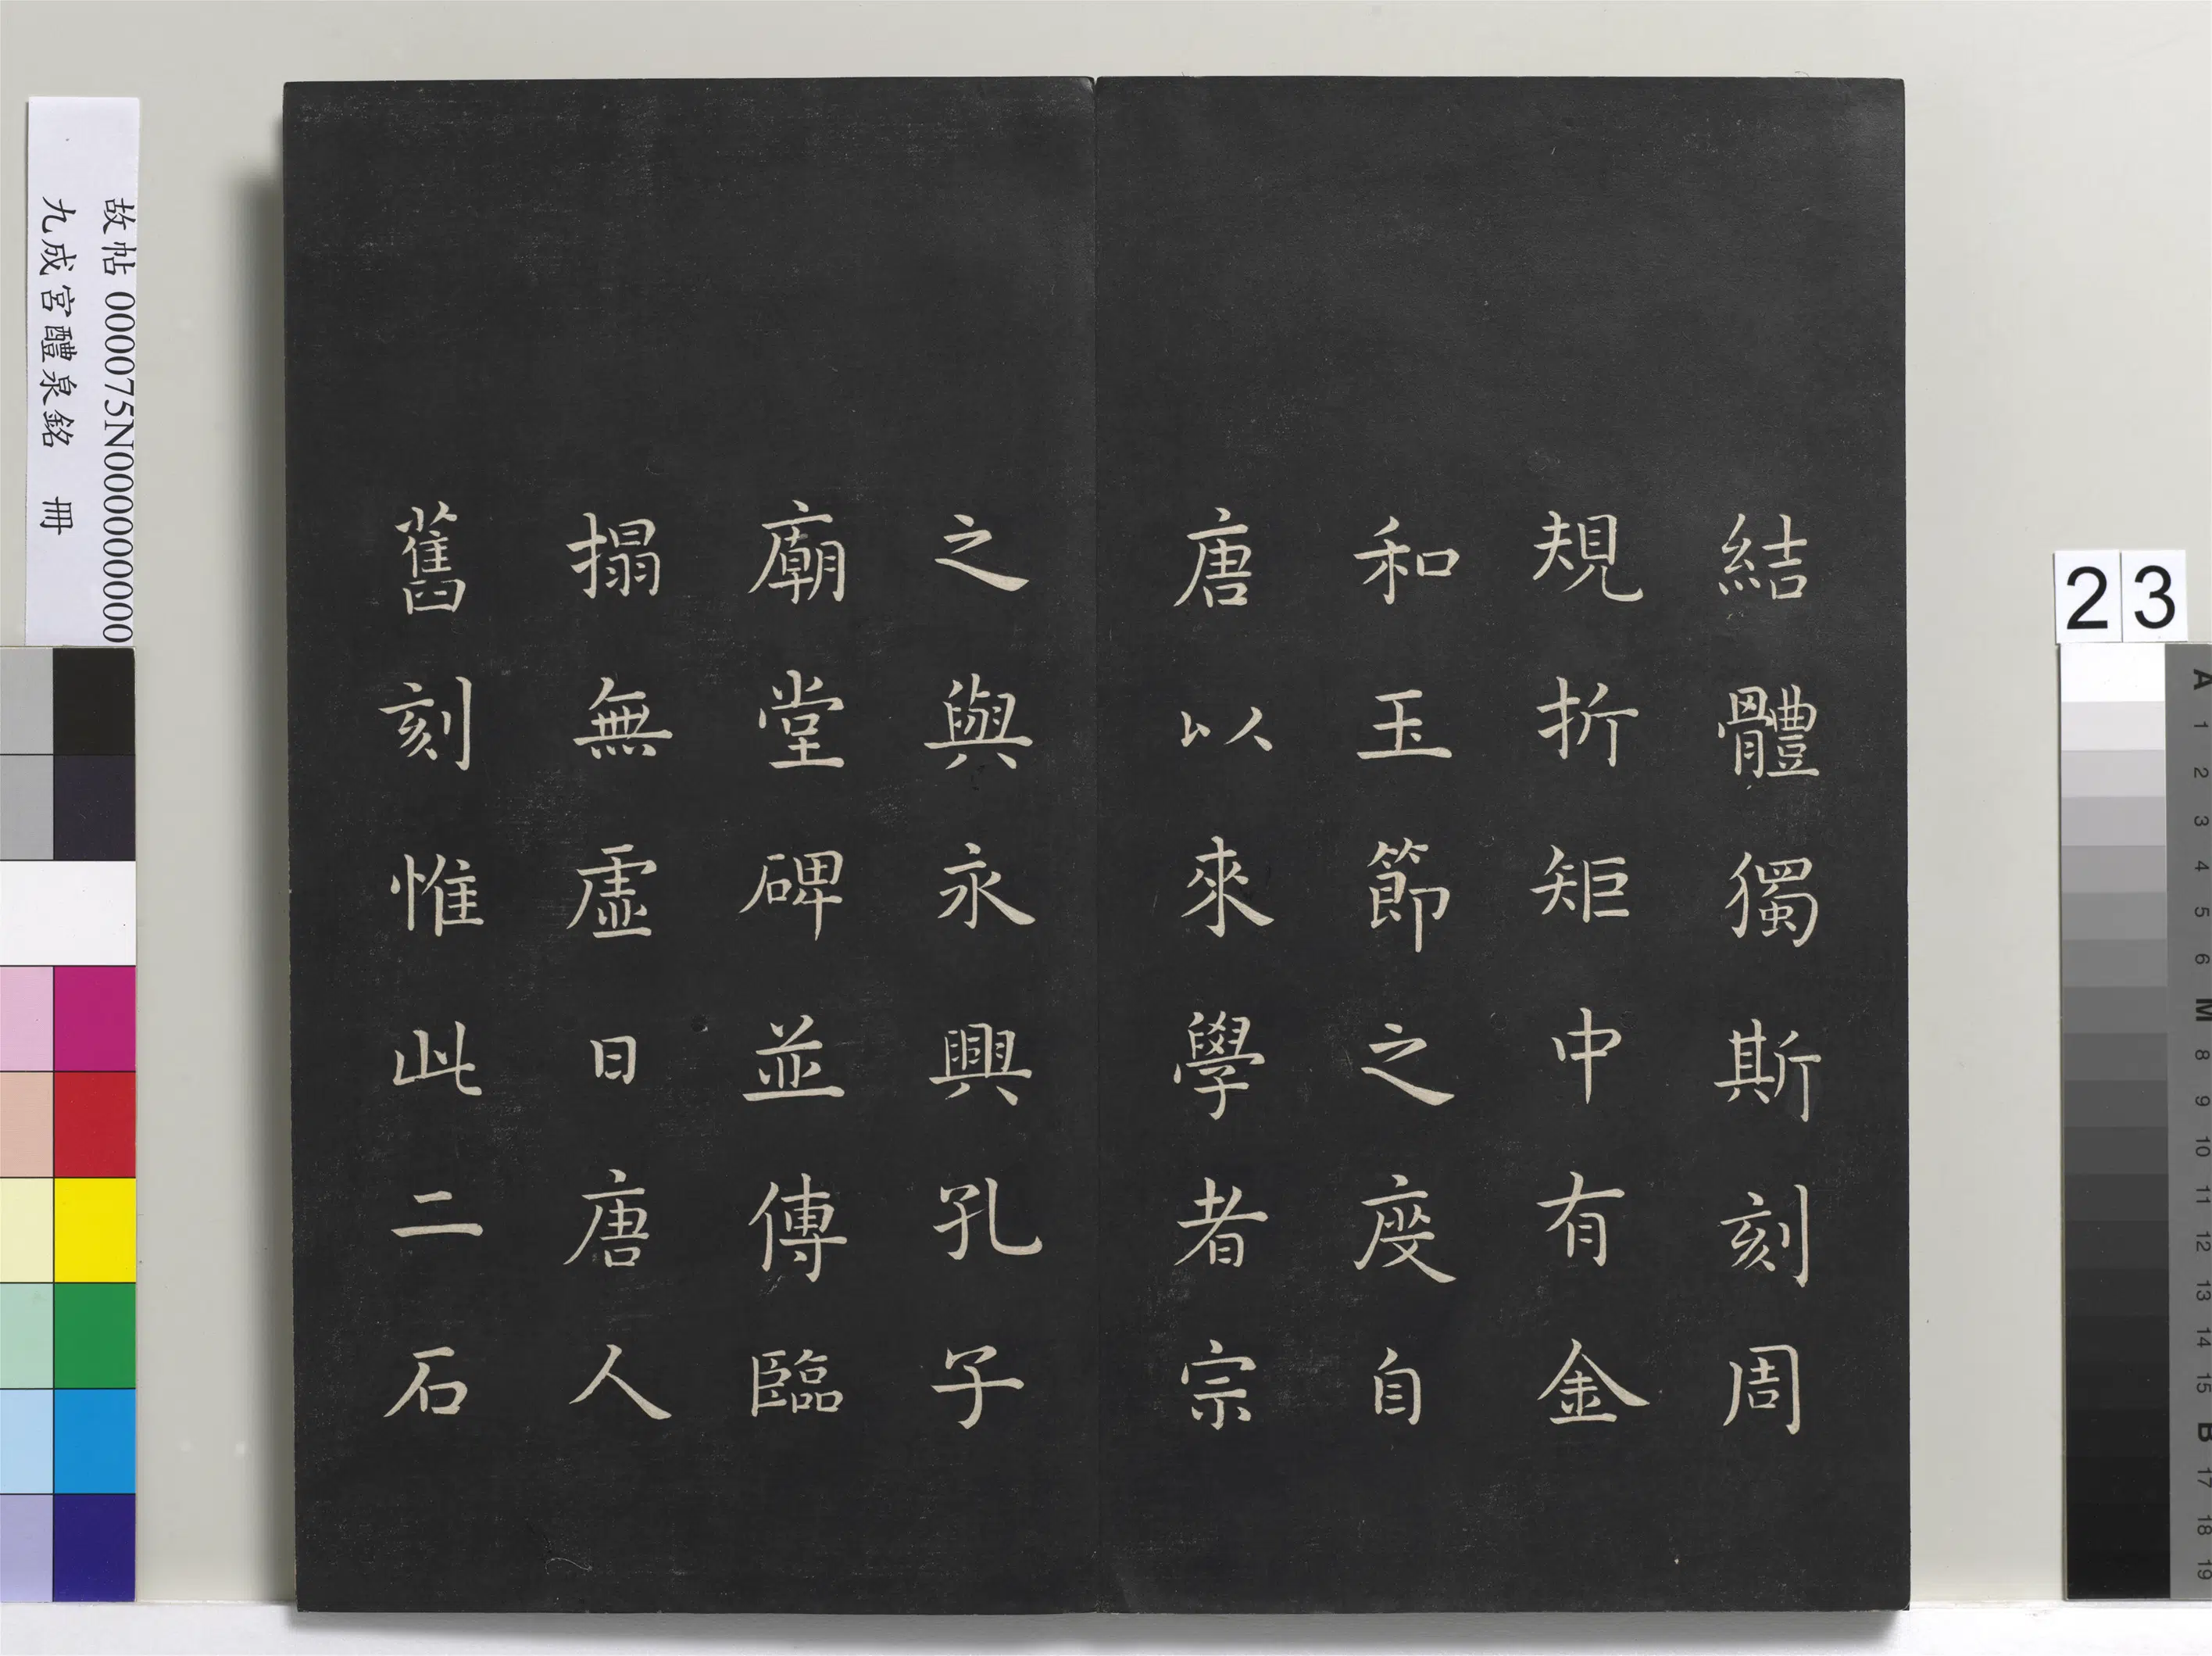 結體獨斯刻周
規折矩中有金
和玉節之度自
唐以來學者宗
之與永興孔子
廟堂碑並傳臨
搨無虛日唐人
舊刻惟此二石
故帖 000075N000000000
九成宮醴泉銘 冊
23
A 1 2 3 4 5 6 M 8 9 10 11 12 13 14 15 B 17 18 19